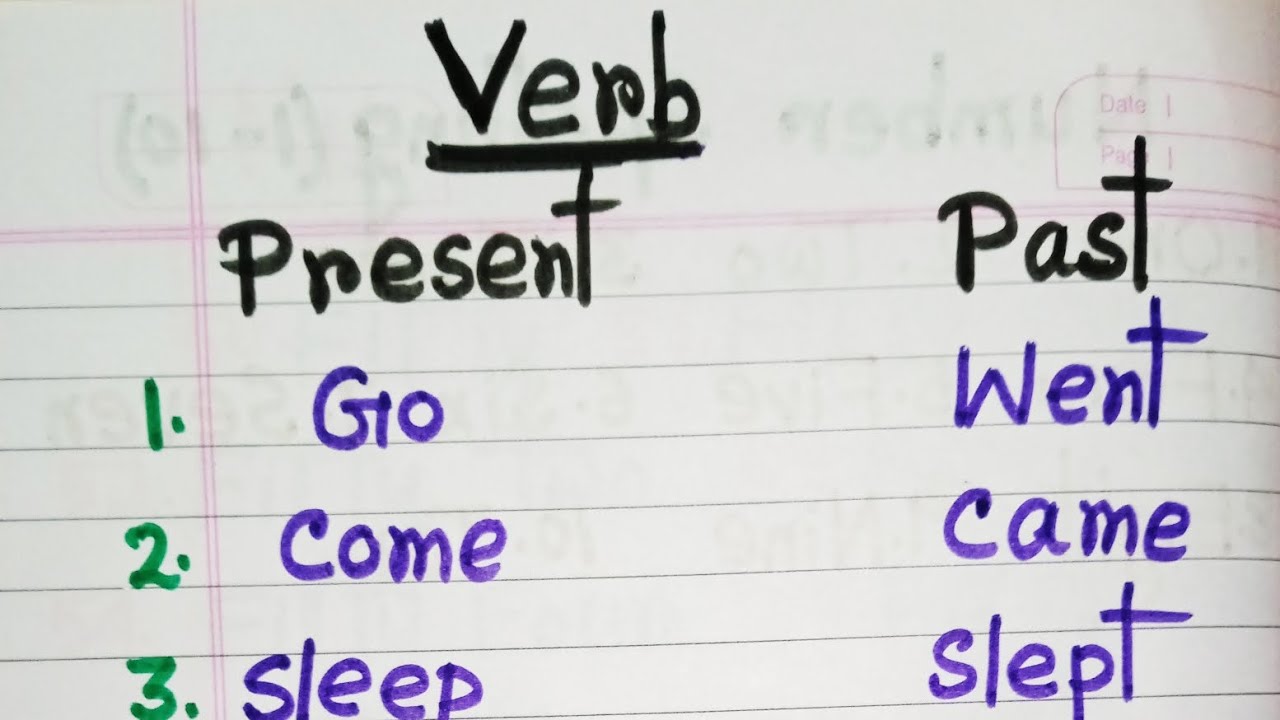 Verb
Date
Page
Present Past
1. Go Went
2. Come Came
3. Sleep Slept